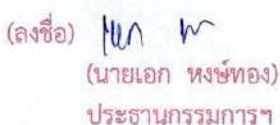 (ลงชื่อ)
(นายเอก หงษ์ทอง)
ประธานกรรมการฯ